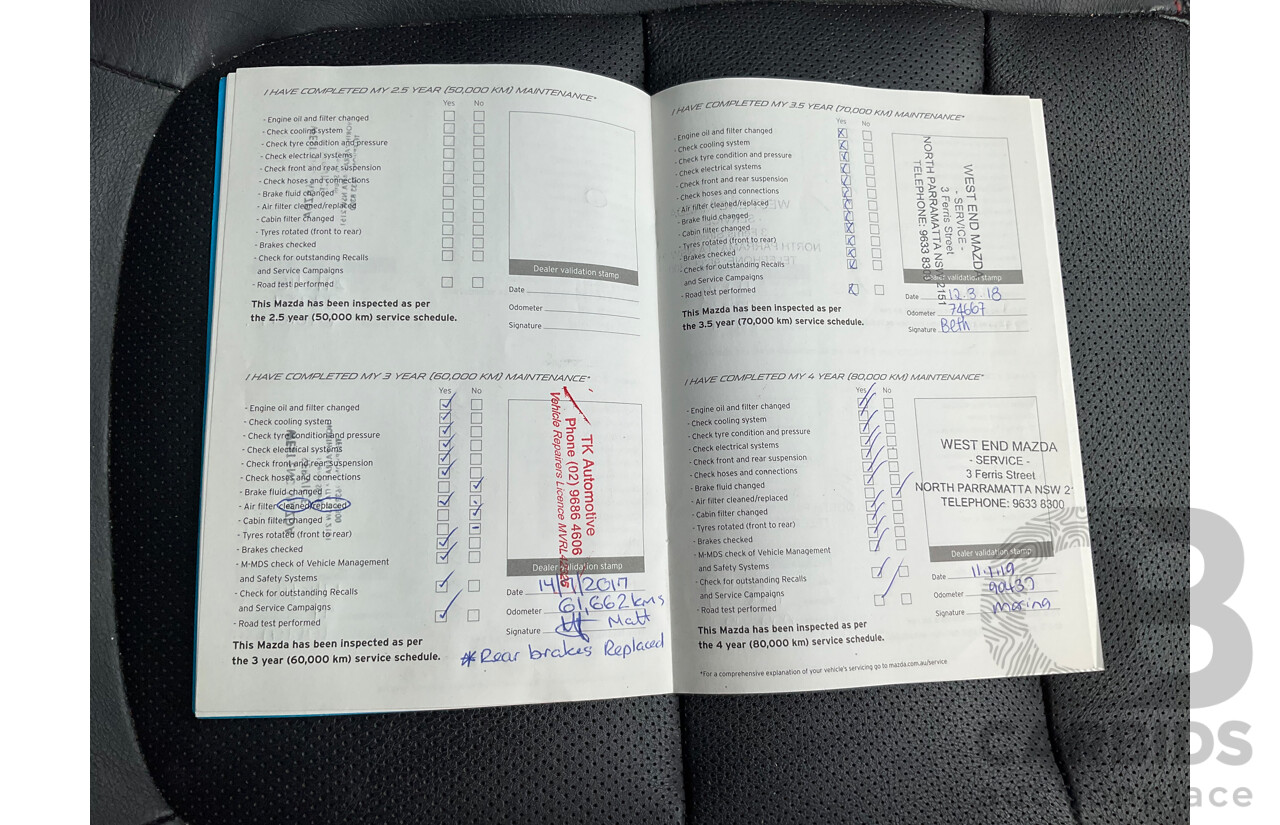 I HAVE COMPLETED MY 2.5 YEAR (50,000 KM) MAINTENANCE*
Yes No
- Engine oil and filter changed
- Check cooling system
- Check tyre condition and pressure
- Check electrical systems
- Check front and rear suspension
- Check hoses and connections
- Brake fluid changed
- Air filter cleaned/replaced
- Cabin filter changed
- Tyres rotated (front to rear)
- Brakes checked
- Check for outstanding Recalls
and Service Campaigns
- Road test performed
Dealer validation stamp
Date
Odometer
Signature
This Mazda has been inspected as per
the 2.5 year (50,000 km) service schedule.
I HAVE COMPLETED MY 3 YEAR (60,000 KM) MAINTENANCE*
Yes No
- Engine oil and filter changed
- Check cooling system
- Check tyre condition and pressure
- Check electrical systems
- Check front and rear suspension
- Check hoses and connections
- Brake fluid changed
- Air filter cleaned/replaced
- Cabin filter changed
- Tyres rotated (front to rear)
- Brakes checked
- M-MDS check of Vehicle Management
and Safety Systems
- Check for outstanding Recalls
and Service Campaigns
- Road test performed
TK Automotive
Phone (02) 9686 4606
Vehicle Repairers Licence
Dealer validation stamp
Date 14/1/2017
Odometer 61,662 kms
Signature Matt
This Mazda has been inspected as per
the 3 year (60,000 km) service schedule.
*Rear brakes Replaced
I HAVE COMPLETED MY 3.5 YEAR (70,000 KM) MAINTENANCE*
Yes No
- Engine oil and filter changed
- Check cooling system
- Check tyre condition and pressure
- Check electrical systems
- Check front and rear suspension
- Check hoses and connections
- Air filter cleaned/replaced
- Brake fluid changed
- Cabin filter changed
- Tyres rotated (front to rear)
- Brakes checked
- Check for outstanding Recalls
and Service Campaigns
- Road test performed
WEST END MAZDA
- SERVICE -
3 Ferris Street
NORTH PARRAMATTA NSW 2151
TELEPHONE: 9633 8300
Dealer validation stamp
Date 12.3.18
Odometer 74667
Signature Beth
This Mazda has been inspected as per
the 3.5 year (70,000 km) service schedule.
I HAVE COMPLETED MY 4 YEAR (80,000 KM) MAINTENANCE*
Yes No
- Engine oil and filter changed
- Check cooling system
- Check tyre condition and pressure
- Check electrical systems
- Check front and rear suspension
- Check hoses and connections
- Brake fluid changed
- Air filter cleaned/replaced
- Cabin filter changed
- Tyres rotated (front to rear)
- Brakes checked
- M-MDS check of Vehicle Management
and Safety Systems
- Check for outstanding Recalls
and Service Campaigns
- Road test performed
WEST END MAZDA
- SERVICE -
3 Ferris Street
NORTH PARRAMATTA NSW 2
TELEPHONE: 9633 8300
Dealer validation stamp
Date 11.1.19
Odometer 90437
Signature
This Mazda has been inspected as per
the 4 year (80,000 km) service schedule.
*For a comprehensive explanation of your vehicle's servicing go to mazda.com.au/service